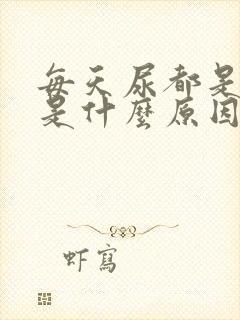 每天尿都是
是什麼原因
虾寫